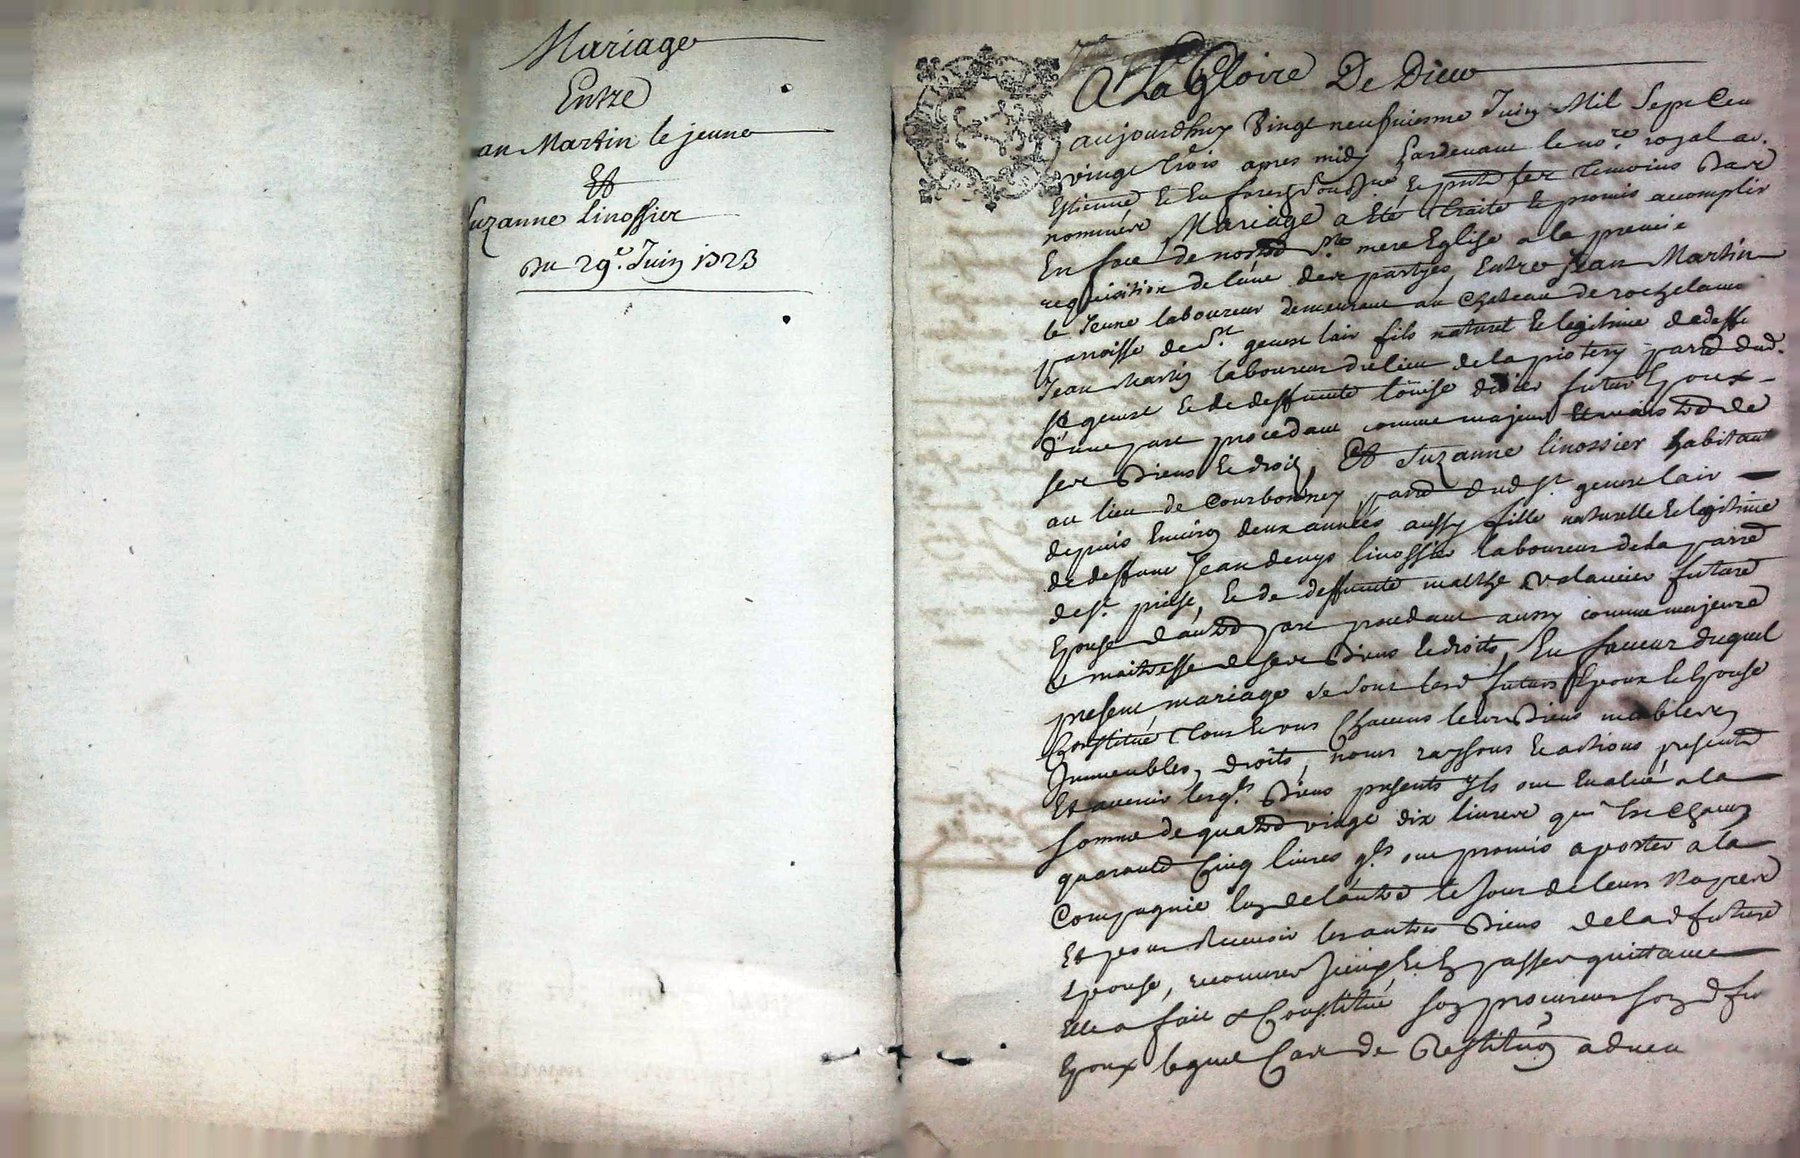 Mariage
Entre
an Martin le jeune
Et
Suzanne linossier
Du 29e. Juin 1723
A La Gloire De Dieu
aujourdhuy vingt neufviesme Juin Mil Sept Cen
vingt trois apres midy pardevant le nore. royal au.
Estienne Et En forest soussigné Et presents les temoins bas
nommés Mariage a Eté traité Et promis accomplir
En face de nostre Ste mere Eglise a la premie
requisition de lune des partyes, Entre Jean Martin
le Jeune laboureur demeurant au Chateau de rochelamo
parroisse de St. genest lair fils naturel Et legitime de deff
Jean Martin laboureur du lieu de la parre dud.
St genest Et de deffunte louise didier futur Epoux
d'une part procedant comme majeur Et maistre de
ses biens Et droits, Et Suzanne linossier habitant
au lieu de Courbonney parre dud St genest lair
depuis Environ deux années aussy fille naturelle Et legitime
de deffunt Jean denys linossier laboureur de la parre
de St. priest, Et de deffunte mathe valancier future
Epouse d'autre part procedant aussy comme majeure
Et maitresse de ses biens Et droits, En faveur duquel
present mariage se sont lesd futurs Epoux Et Epouse
Constitué tous Et uns Chacuns leurs biens meubles,
Immeubles, droits, noms raysons Et actions presents
Et avenir lesqls. biens presents Ils ont Evalué a la
somme de quatre vingt dix livres qui Est Chacun
quarante Cinq livres qls ont promis aporter a la
Compagnie lun de l'autre le Jour de leurs nopces
Et pour recevoir les autres biens de lad future
Epouse, recouvrer Et En passer quittance
Elle a fait Et Constitué son procureur sond fu
Epoux lequel Cas de Restituon advena